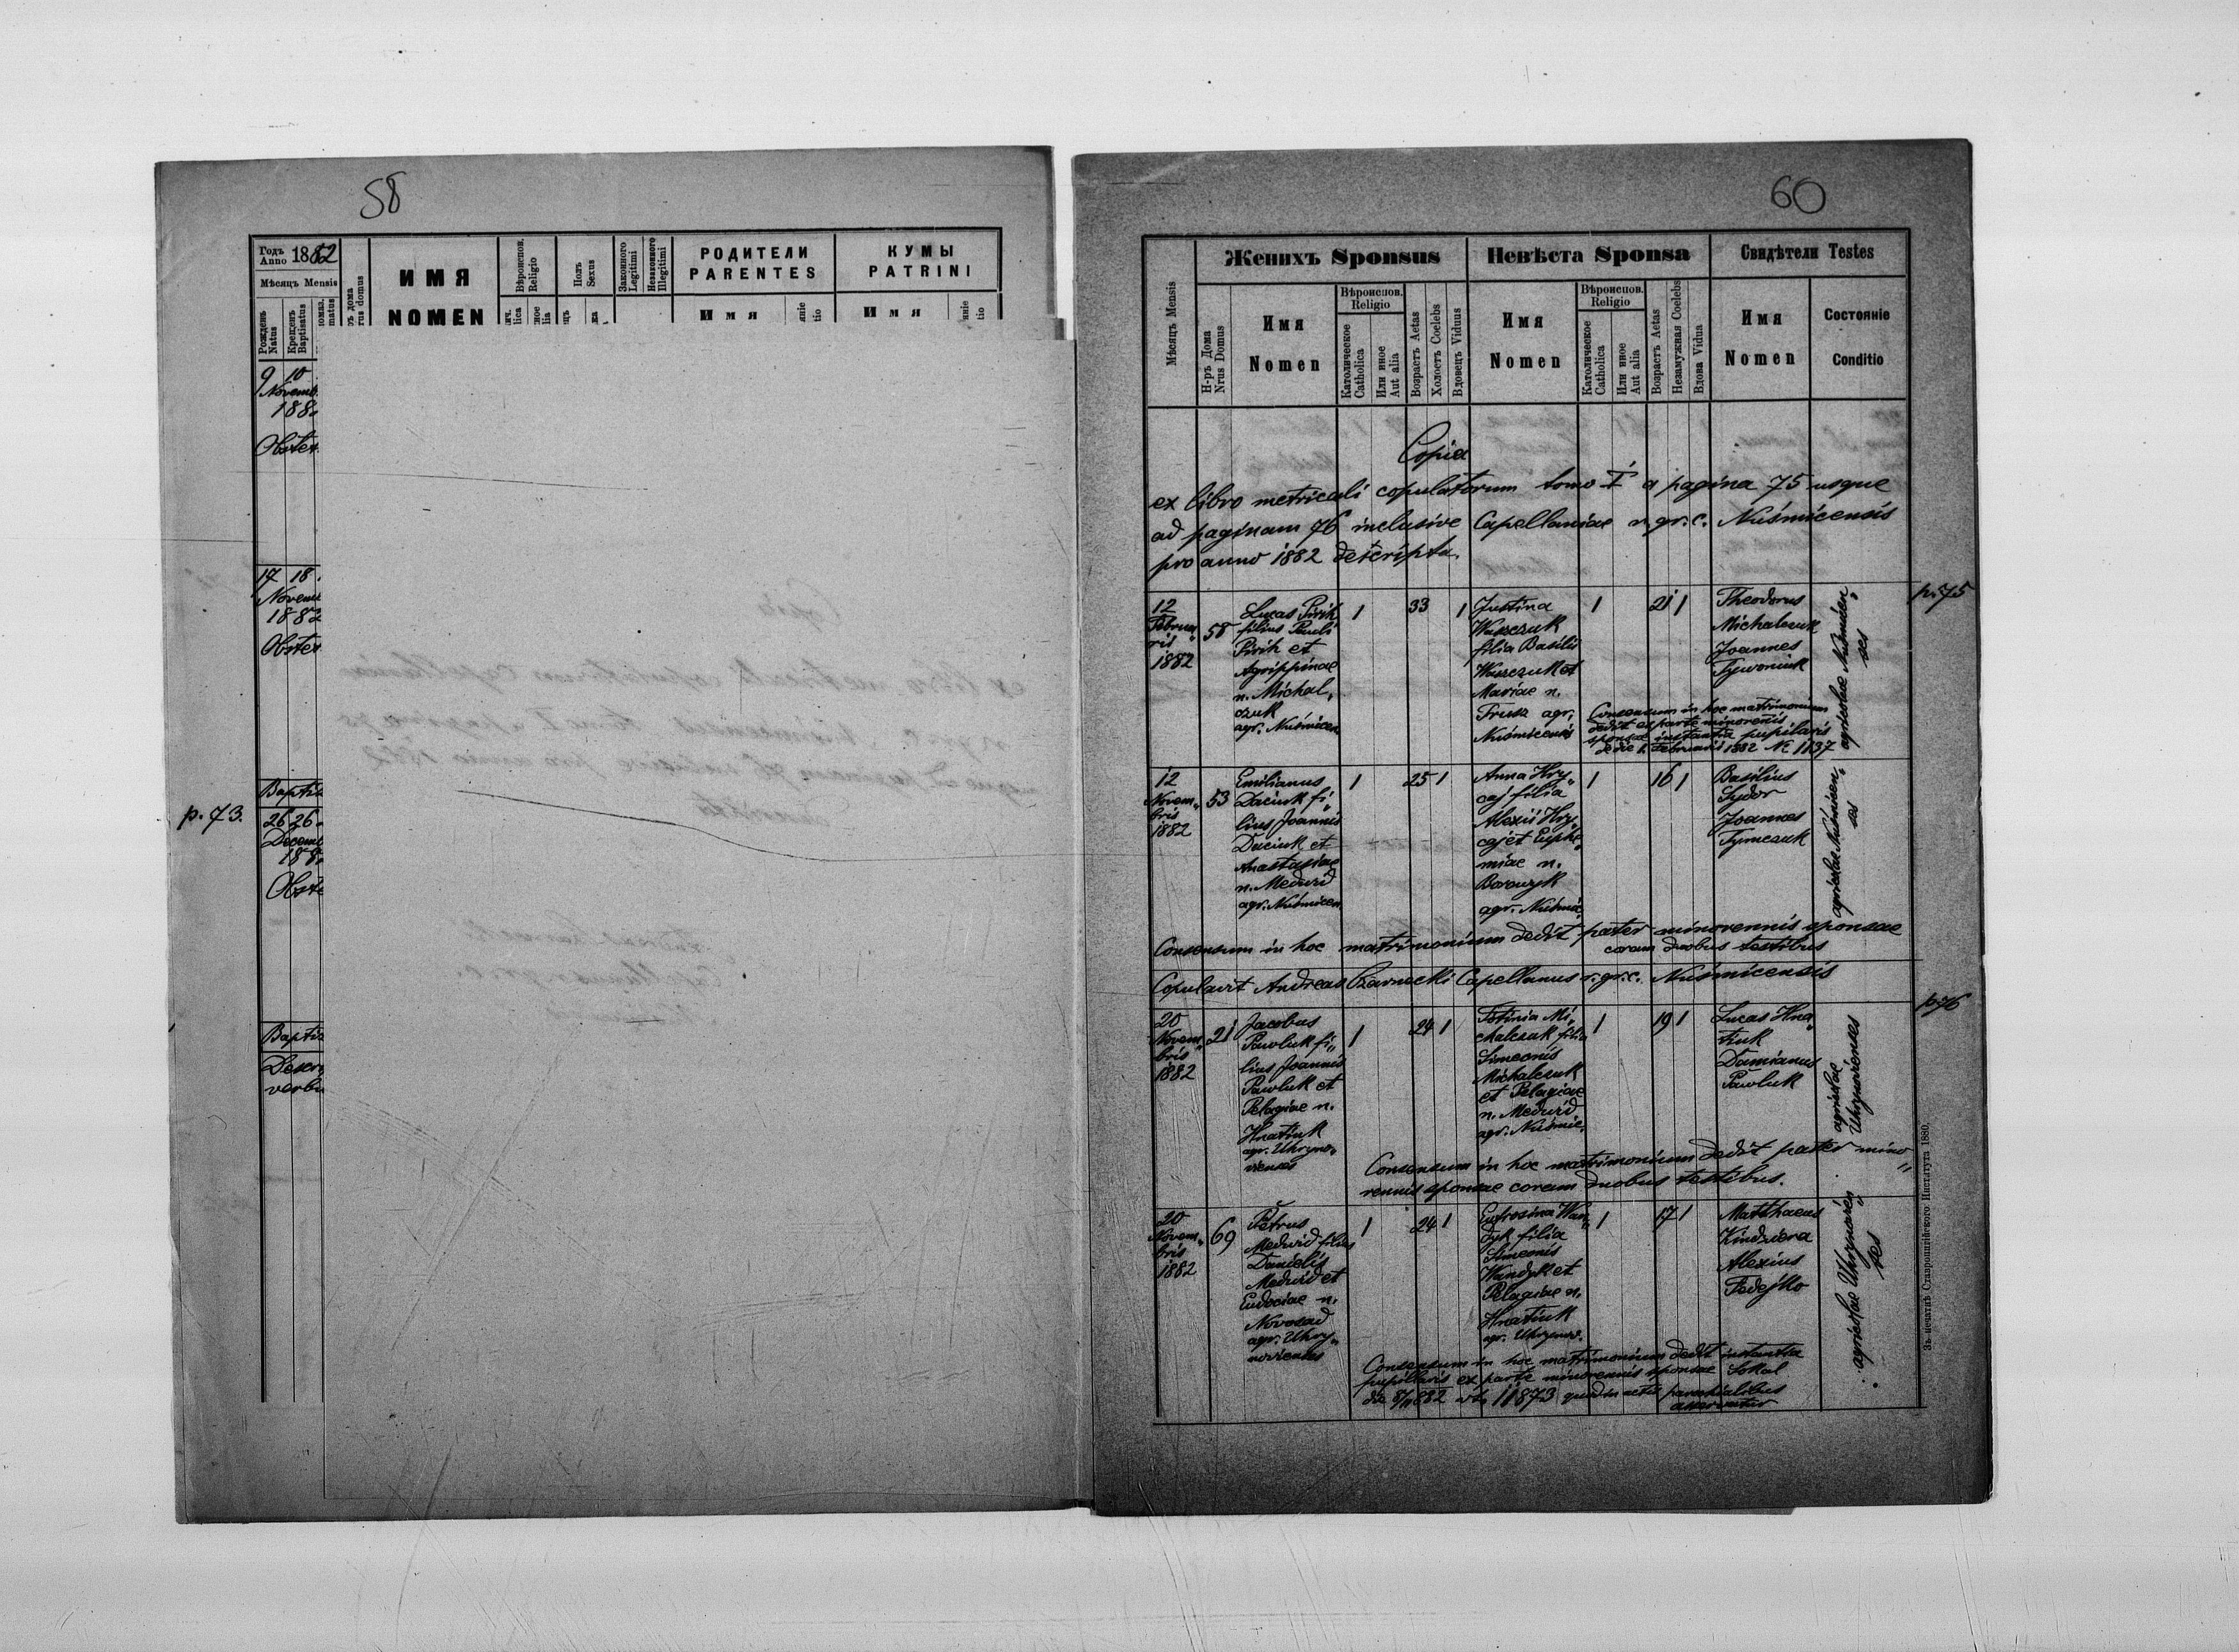 58
Годъ
Anno 1882
Мѣсяцъ Mensis
Рожденъ
Natus
Крещенъ
Baptisatus
ИМЯ
NOMEN
Вѣроиспов.
Religio
Полъ
Sexus
Законного
Legitimi
Незаконного
Illegitimi
РОДИТЕЛИ
PARENTES
Имя
КУМЫ
PATRINI
Имя
9 10
Novemb
188
Obster
17 18
Novem
1882
Obster
Baptis
p. 73.
26 26
Decemb
188
Obste
Baptis
Descr
verbu
60
Мѣсяцъ Mensis
Женихъ Sponsus
Невѣста Sponsa
Свидѣтели Testes
Н-ръ Дома
Nrus Domus
Имя
Nomen
Вѣроиспов.
Religio
Католическое
Catholica
Или иное
Aut alia
Возрастъ Aetas
Холостъ Coelebs
Вдовецъ Viduus
Имя
Nomen
Вѣроиспов.
Religio
Католическое
Catholica
Или иное
Aut alia
Возрастъ Aetas
Незамужная Coelebs
Вдова Vidua
Имя
Nomen
Состоянiе
Conditio
Copia
ex libro metricali copulatorum tomo I a pagina 75 usque
ad paginam 76 inclusive Capellaniae r. gr. c. Nuśmicensis
pro anno 1882 descripta.
p. 75
12
Februa„
ris
1882
58
Lucas Pirih
filius Pauli
Pirih et
Agrippinae
n. Michal„
czuk
agr. Nuśmicen
1
33
1
Justina
Waszczuk
filia Basilii
Waszczuk et
Mariae n.
Trusz agr.
Nuśmicensis
1
21
1
Theodorus
Michalczuk
Joannes
Tywoniuk
agricolae Nuśmicen„
ses
Consensum in hoc matrimonium
dedit ex parte minorenis
sponsae instantia pupilaris
de die 1. Februaris 1882 № 1137
12
Novem„
bris
1882
53
Emilianus
Daciuk fi„
lius Joannis
Daciuk et
Anastasiae
n. Medwid
agr. Nuśmicen
1
25
1
Anna Hry„
caj filia
Alexii Hry„
caj et Euphe„
miae n.
agr. Nuśmic
1
16
1
Basilius
Sydor
Joannes
Tymczuk
agricolae Nuśmicen„
ses
Consensum in hoc matrimonium dedit pater minorennis sponsae
coram duobus testibus
Copulavit Andreas Czarnecki Capellanus r. gr. c. Nuśmicensis
p. 76
20
Novem„
bris
1882
21
Jacobus
Pawluk fi„
lius Joannis
Pawluk et
Pelagiae n.
Hnatiuk
agr. Uhryno„
vienses
1
24
1
Fotinia Mi„
chalczuk filia
Simeonis
Michalczuk
et Pelagiae
n. Medwid
agr. Nuśmic.
1
19
1
Lucas Hna„
tiuk
Damianus
Pawluk
agricolae
Uhrynovienses
Consensum in hoc matrimonium dedit pater mino„
rennis sponsae coram duobus testibus.
20
Novem„
bris
1882
69
Petrus
Medwid filius
Danielis
Medwid et
Eudociae n.
Novosad
agr. Uhry„
novienses
1
24
1
Eufrosina Wan„
dyk filia
Simeonis
Wandyk et
Pelagiae n.
Hnatiuk
agr. Uhrynov.
1
17
1
Matthaeus
Kindziera
Alexius
Fedejko
Consensum in hoc matrimonium dedit instantia
pupillaris ex parte minorennis sponsae Sokal
11873 quod in actis parochialibus
asservatur
Зъ печатнѣ Ставропигійского Института 1880.